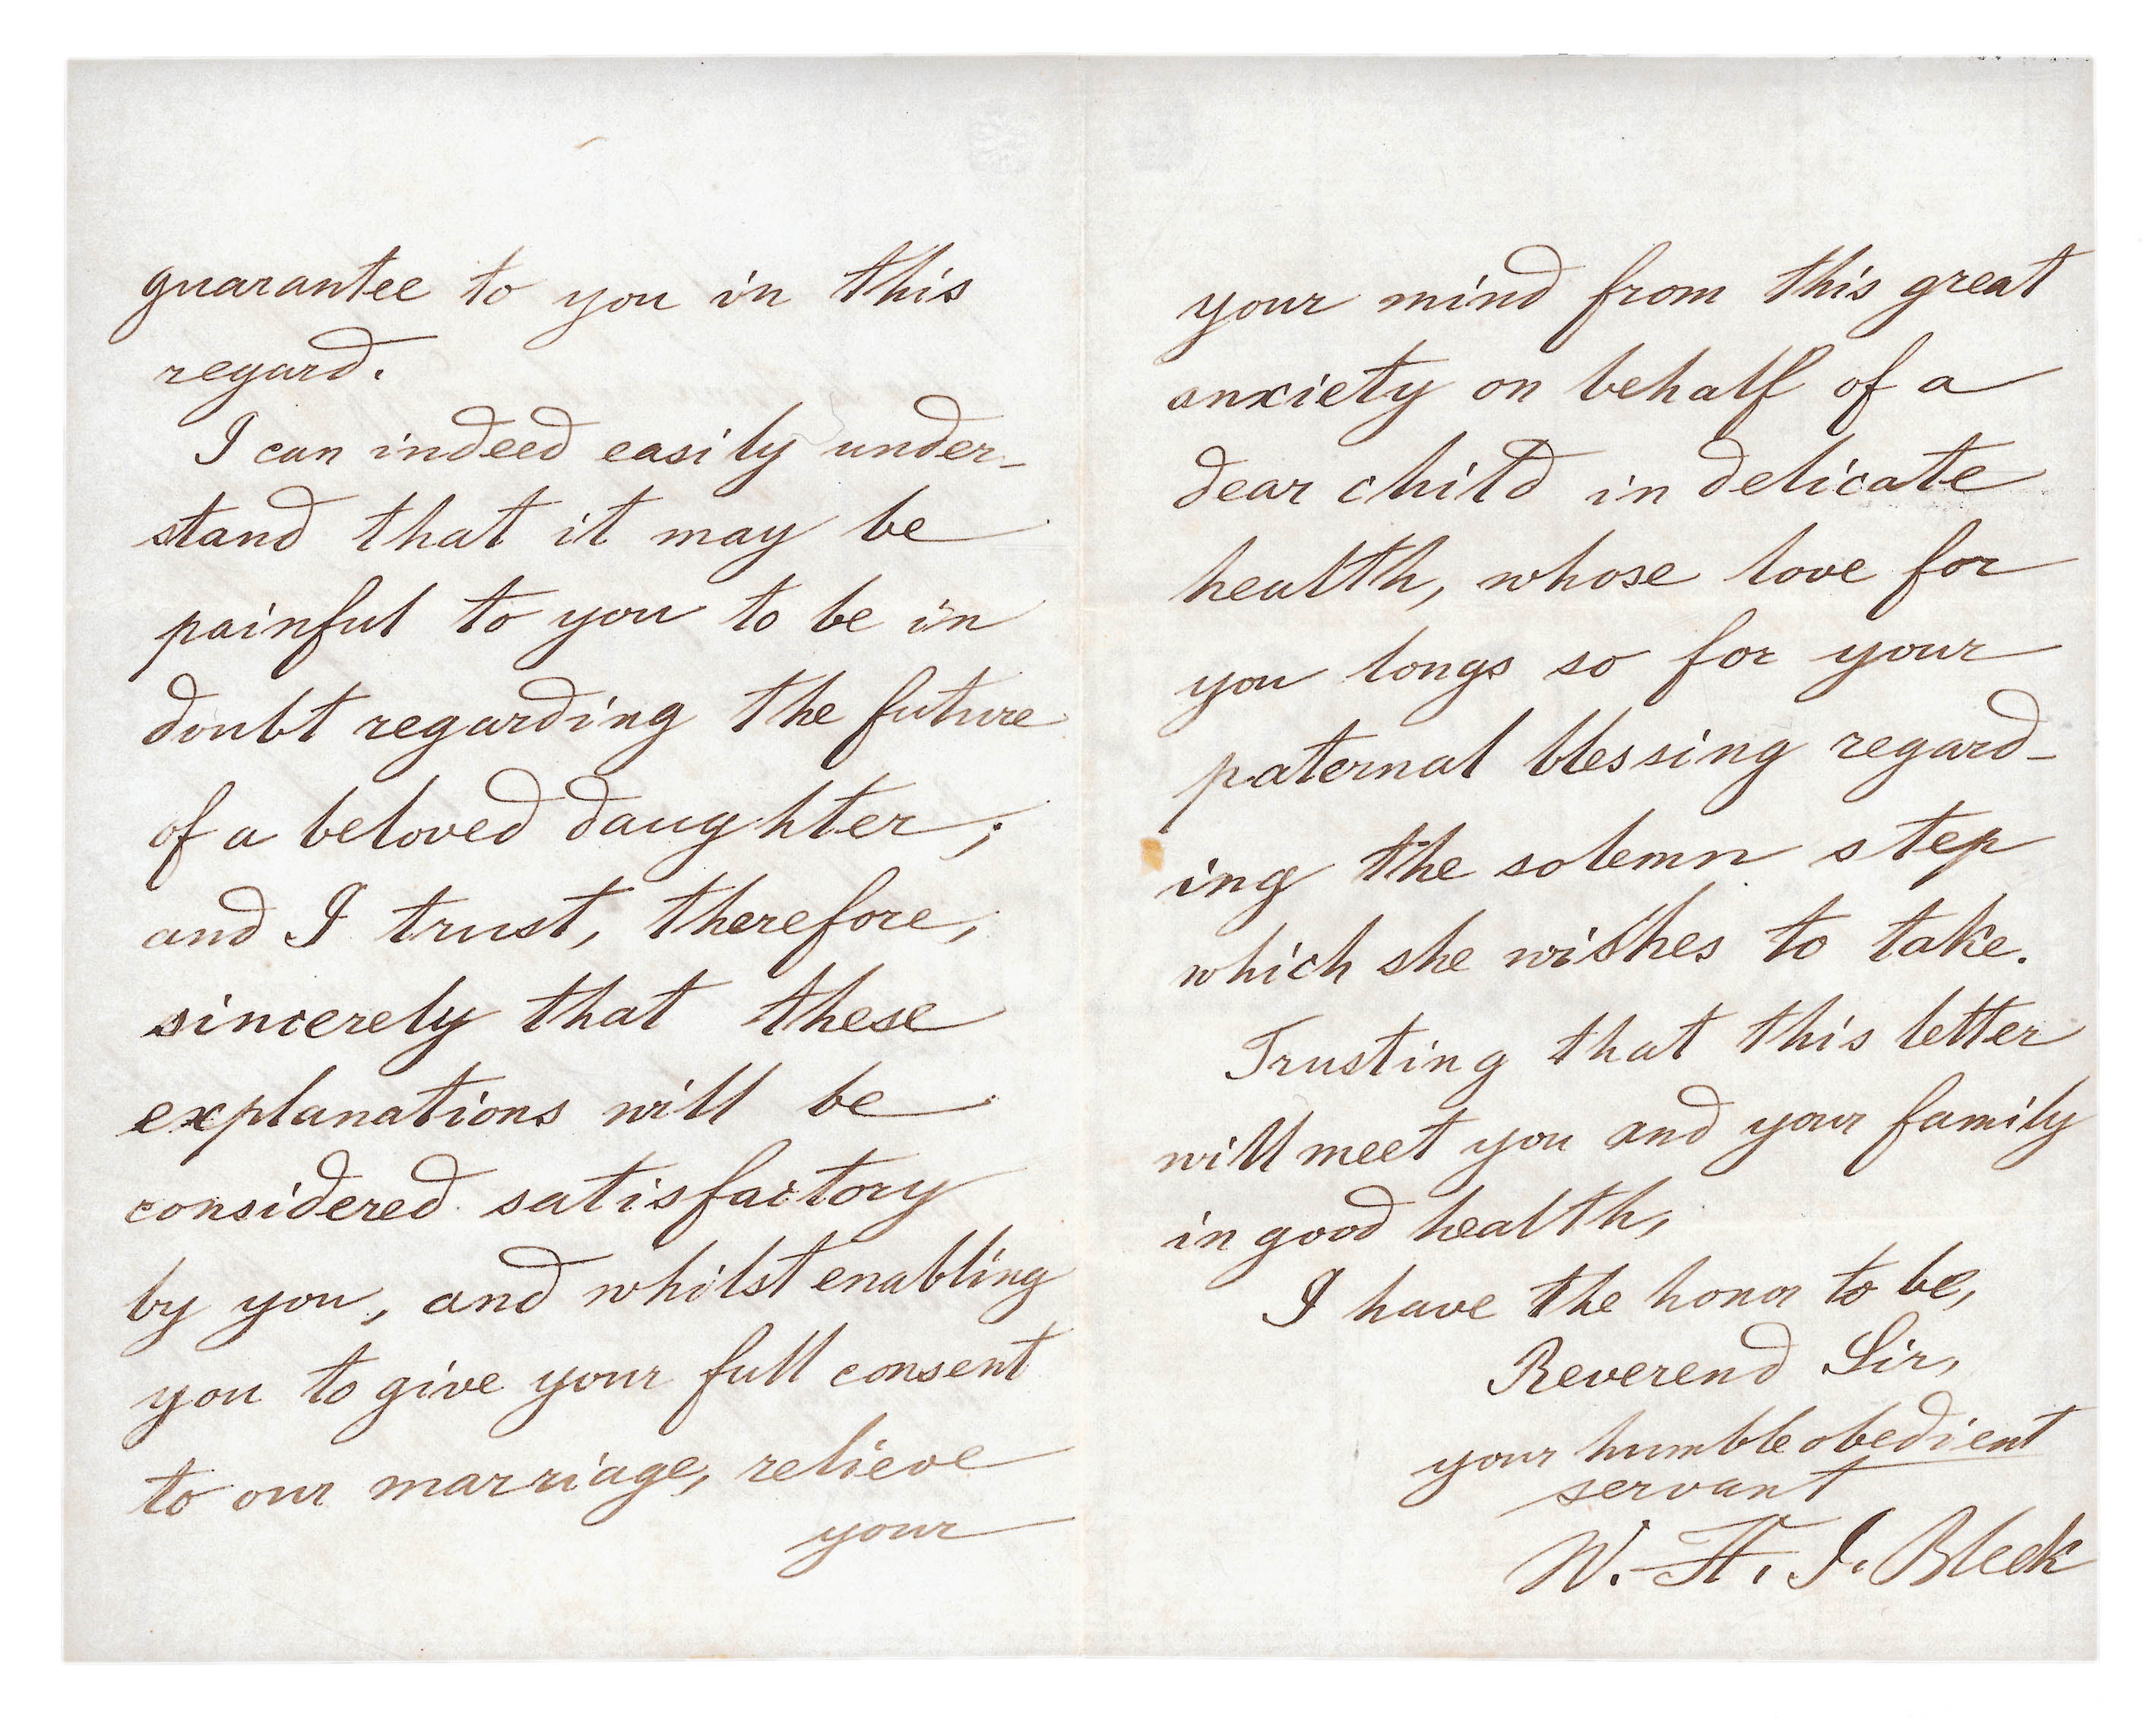 guarantee to you in this
regard.
I can indeed easily under-
stand that it may be
painful to you to be in
doubt regarding the future
of a beloved daughter;
and I trust, therefore,
sincerely that these
explanations will be
considered satisfactory
by you, and whilst enabling
you to give your full consent
to our marriage, relieve
your
your mind from this great
anxiety on behalf of a
dear child in delicate
health, whose love for
you longs so for your
paternal blessing regard-
ing the solemn step
which she wishes to take.
Trusting that this letter
will meet you and your family
in good health,
I have the honor to be,
Reverend Sir,
your humble obedient
servant
W. H. I. Bleek